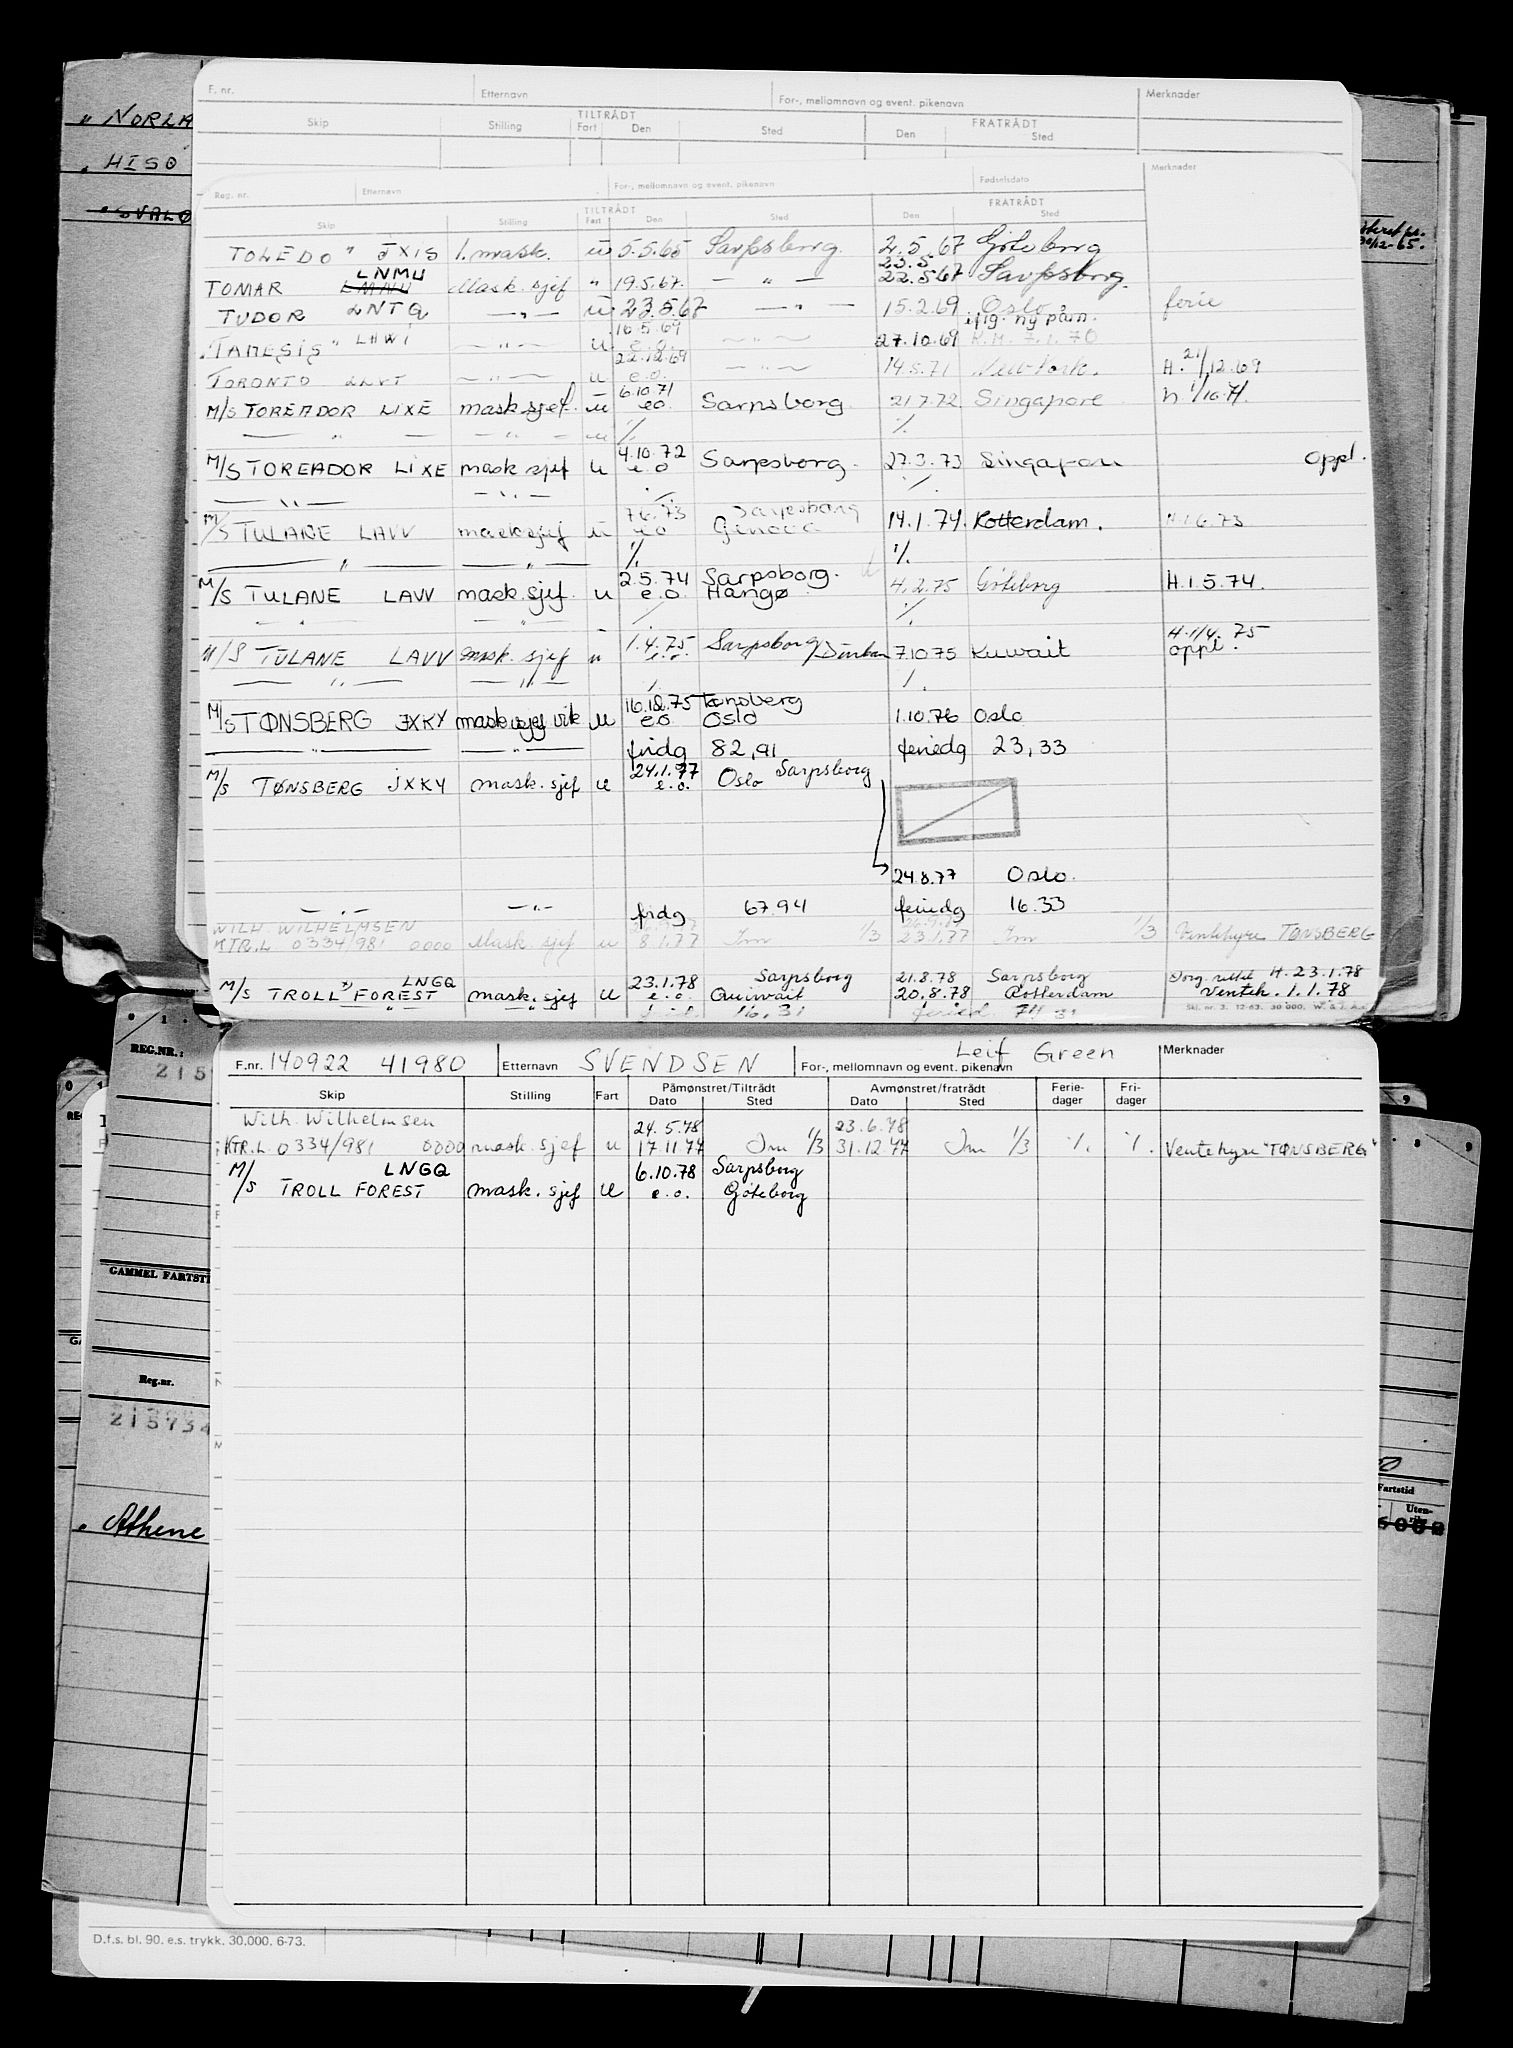 " NORLA
" HISØ
" SVALØ
F. nr. Etternavn For-, mellomnavn og event. pikenavn Merknader
TILTRÅDT FRATRÅDT
Skip Stilling Fart Den Sted Den Sted
Reg. nr. Etternavn For-, mellomnavn og event. pikenavn Fødselsdato Merknader
TILTRÅDT FRATRÅDT
Skip Stilling Fart Den Sted Den Sted
TOLEDO " JXIS 1. mask. u 5.5.65 Sarpsborg. 2.5.67 Göteborg
LNMU 23.5
TOMAR LMHU Mask. sjef " 19.5.67. — " — 22.5.67 Sarpsborg.
TUDOR LNTQ — " — u 23.5.67 — " — 15.2.69 Oslo ferie
16.5.69 iflg. ny påm.
"TAMESIS" LHWI — " — u e.o. — " — 27.10.69 R.M. 7.1.70
22.12.69
TORONTO LLVT — " — u e.o. 14.5.71 New York. H. 21/12.69
6.10.71
M/S TOREADOR LIXE mask sjef. u eo Sarpsborg 21.7.72 Singapore
— " — — " — u ٪ ٪
4.10.72
M/S TOREADOR LIXE mask sjef u e o Sarpsborg. 27.3.73 Singapore oppl.
— " — — " —
7.6.73 Sarpsborg
M/S TULANE LAVV mask sjef u e o Genova 14.1.74. Rotterdam. H.1.6.73
— " — — " — ٪ ٪
2.5.74 Sarpsborg.
M/S TULANE LAVV mask. sjef. u e.o. Hangø 4.2.75 Göteborg H.1.5.74.
— " — — " —
1.4.75. Sarpsborg H.1/4. 75
M/S TULANE LAVV mask. sjef u e.o. /Durban 7.10.75 Kuwait oppl.
— " — — " —
16.12.75 Tønsberg
M/S TØNSBERG JXKY mask sjef vik u e.o Oslo 1.10.76 Oslo
— " — — " — fridg 82,91 feriedg 23,33
24.1.77 Sarpsborg
M/S TØNSBERG JXKY mask. sjef u e.o. Oslo
24.8.77 Oslo.
— " — — " — fridg 67.94 feriedg 16.33
WILH. WILHELMSEN
KTR.L 0334/981 0000 Mask. sjef u 8.1.77 Im 1/3 23.1.77 Im 1/3 Ventehyre TØNSBERG
LNGQ 23.1.78 Sarpsborg 21.8.78 Sarpsborg Dorg. rettet H. 23.1.78
M/S TROLL FOREST mask. sjef u e.o. Quiwait 20.8.78 Rotterdam Venteh. 1.1.78
16,31
F.nr. 140922 41980 Etternavn SVENDSEN For-, mellomnavn og event. pikenavn Leif Green Merknader
Påmønstret/Tiltrådt Avmønstret/fratrådt Ferie- Fri-
Skip Stilling Fart Dato Sted Dato Sted dager dager
Wilh. Wilhelmsen 24.5.78 23.6.78
KTR.L 0334/981 0000 mask. sjef u 17.11.77 Im 1/3 31.12.77 Im 1/3 ٪ ٪ Ventehyre "TØNSBERG"
LNGQ 6.10.78 Sarpsborg
M/S TROLL FOREST mask. sjef u e.o. Göteborg
REG.NR.:
GAMMEL FARTSTI
Reg.nr.
215734
" Athene
Fartstid
Uten-
D.f.s. bl. 90. e.s. trykk. 30.000. 6-73.